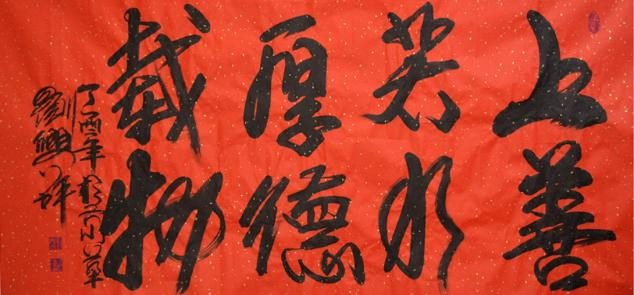 上善
若水
厚德
載物
丁酉年
劉興祥